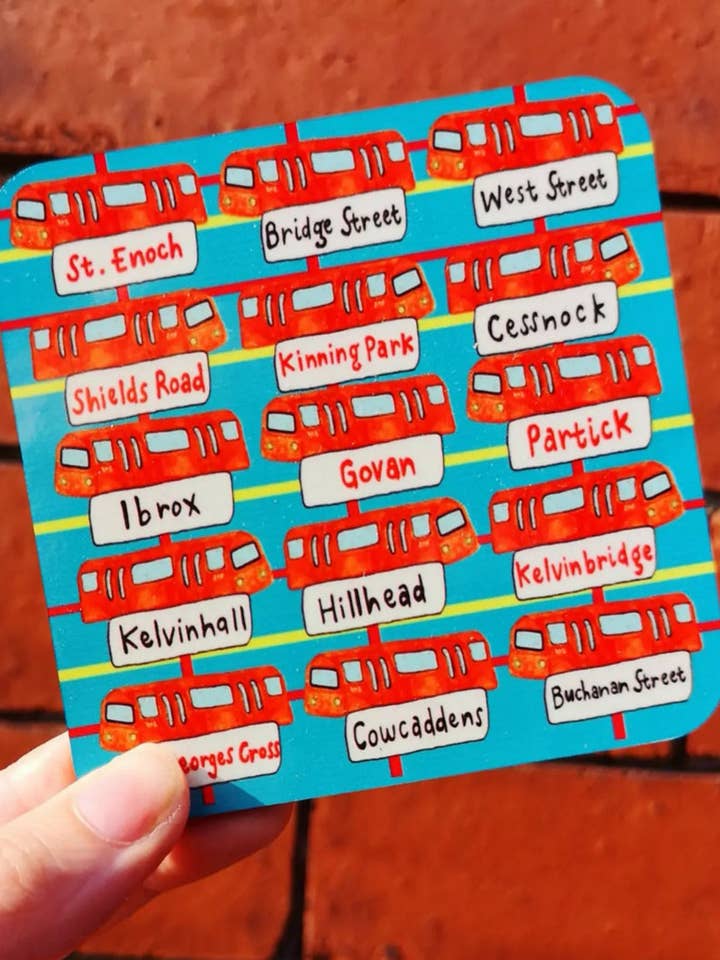 St. Enoch
Bridge Street
West Street
Shields Road
Kinning Park
Cessnock
Ibrox
Govan
Partick
Kelvinhall
Hillhead
Kelvinbridge
eorges Cross
Cowcaddens
Buchanan Street